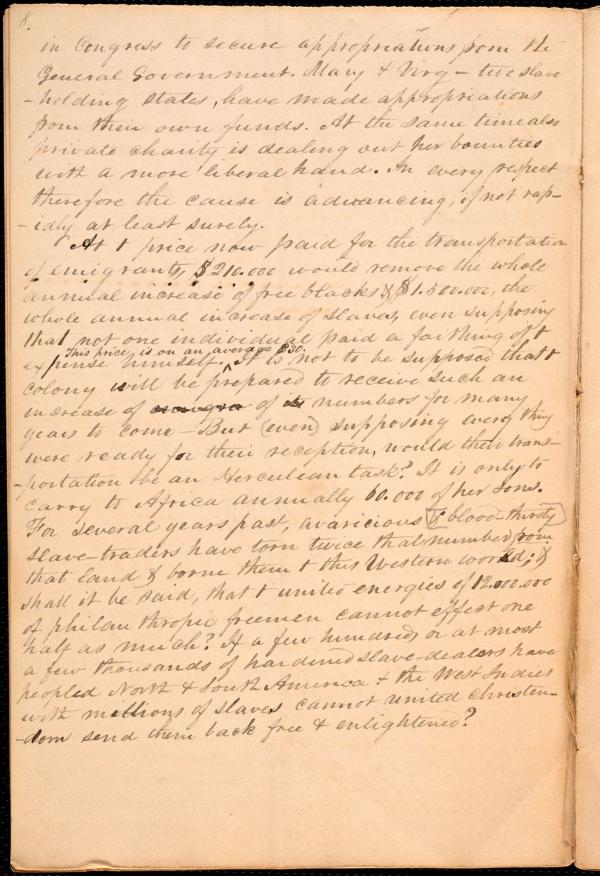 8.
in Congress to secure appropriations from the
General Government. Mary & Virg – two slave
-holding states, have made appropriations
from their own funds. At the same time also
private charity is dealing out her bounties
with a more liberal hand. In every respect
therefore the cause is advancing, if not rap-
-idly at least surely.
At t price now paid for the transportation
of emigrants, $210.000 would remove the whole
annual increase of free blacks & $1.500.000, the
whole annual increase of slaves, even supposing
that not one individual paid a farthing of t
This price is on an average $30.
expense himself. ^ It is not to be supposed that t
colony will be prepared to receive such an
increase of of its numbers for many
years to come – But (even) supposing every thing
were ready for their reception, would their trans-
-portation be an Herculean task? It is only to
carry to Africa annually 60.000 of her sons.
For several years past, avaricious & blood-thirsty
slave-traders have torn twice that number from
that land & borne them t this Western world; &
shall it be said, that t united energies of 12.000.000
of philanthropic freemen cannot effect one
half as much? If a few hundreds or at most
a few thousands of hardened slave-dealers have
peopled North & South America & the West Indies
with millions of slaves cannot united christen-
-dom send them back free & enlightened?